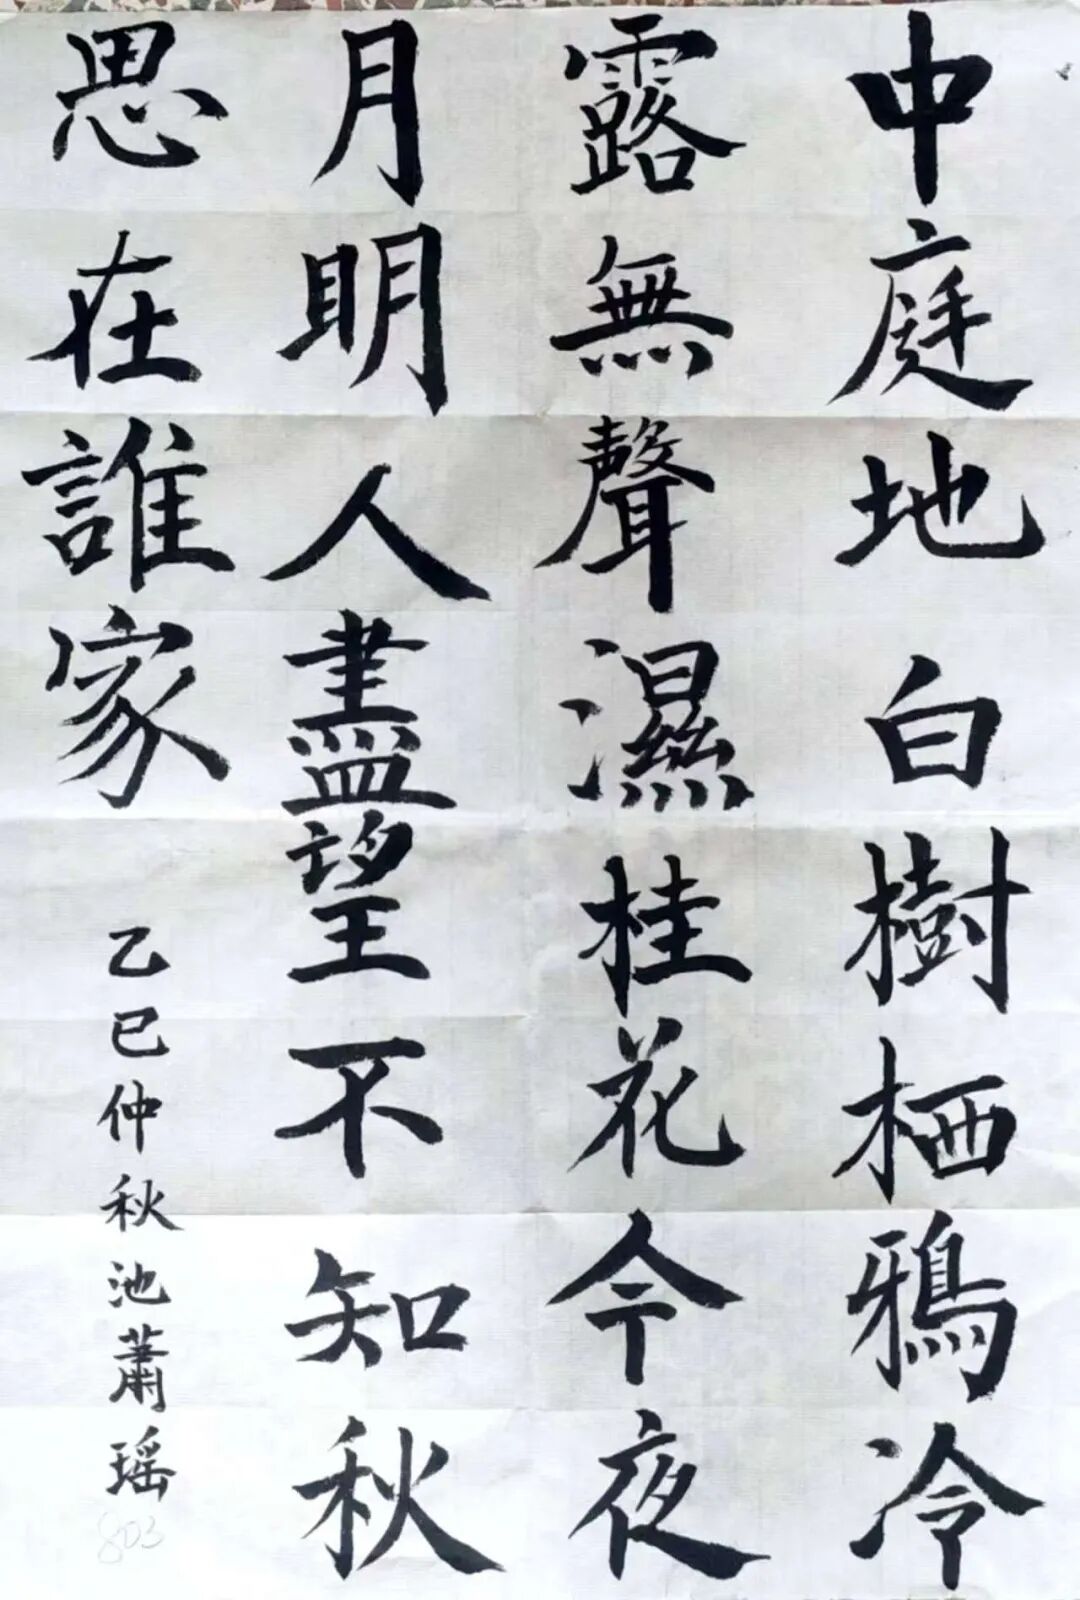 中庭地白樹栖鴉冷
露無聲濕桂花今夜
月明人盡望不知秋
思在誰家
乙巳仲秋池蕭瑶
803